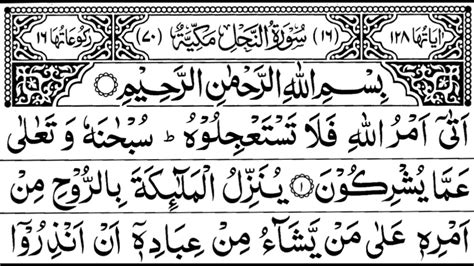 اٰیَاتُهَا ۱۲۸ (۱۶) سُوْرَةُ النَّحْلِ مَكِّيَّةٌ (۷۰) رُكُوْعَاتُهَا ۱۶
بِسْمِ اللهِ الرَّحْمٰنِ الرَّحِيْمِ
اَتٰۤى اَمْرُ اللهِ فَلَا تَسْتَعْجِلُوْهُ ؕ سُبْحٰنَهٗ وَ تَعٰلٰى
عَمَّا يُشْرِكُوْنَ ۱ يُنَزِّلُ الْمَلٰٓئِكَةَ بِالرُّوْحِ مِنْ
اَمْرِهٖ عَلٰى مَنْ يَّشَآءُ مِنْ عِبَادِهٖۤ اَنْ اَنْذِرُوْۤا